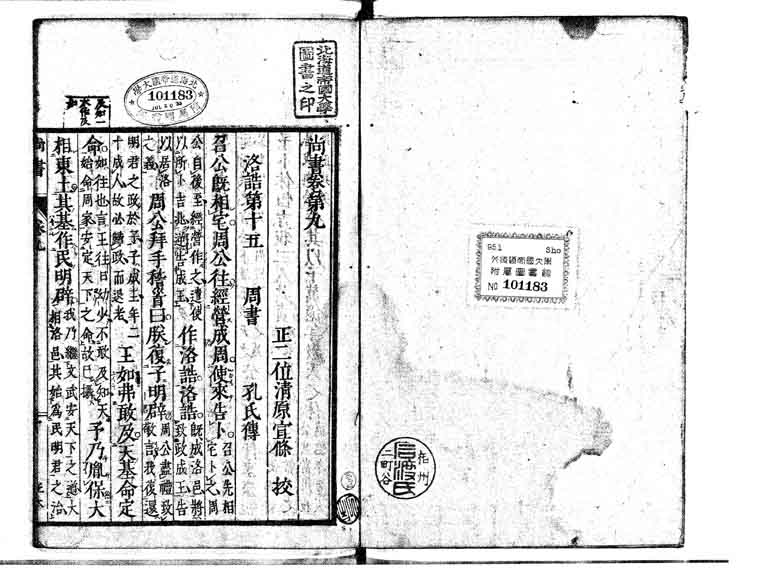 951 Sho
北海道帝國大學
附屬圖書館
No 101183
北海道帝國大學
圖書之印
101183
尚書卷第九
正二位清原宣條 校
洛誥第十五 周書 孔氏傳
召公既相宅周公往經營成周使來告卜召公先相宅卜之周
公自後至經營作之遣使以所卜吉兆逆告成王作洛誥洛誥既成洛邑將致政成王告
以居洛之義周公拜手稽首曰朕復子明辟周公盡禮致敬言我復還
明君之政於子子成王年二十成人故必歸政而退老王如弗敢及天基命定
命如往也言王往日幼少不敢及知天始命周家安定天下之命故已攝予乃胤保大
相東土其基作民明辟我乃繼文武安天下之道大相洛邑其始爲民明君之治
尚書